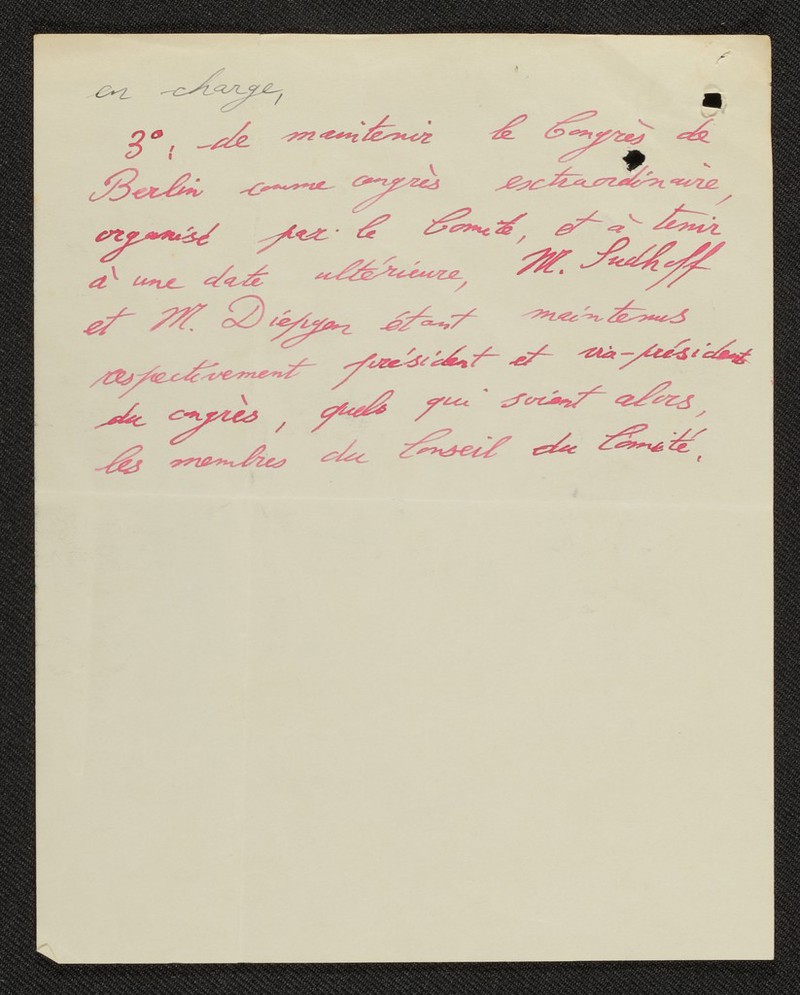 en charge,
3°, de maintenir le Congrès de
Berlin comme congrès extraordinaire,
organisé par le Comité, et à tenir
à une date ultérieure, M. Sudhoff
et M. Diepgen étant maintenus
respectivement président et vice-président
du congrès, quels qui soient alors,
les membres du Conseil du Comité.